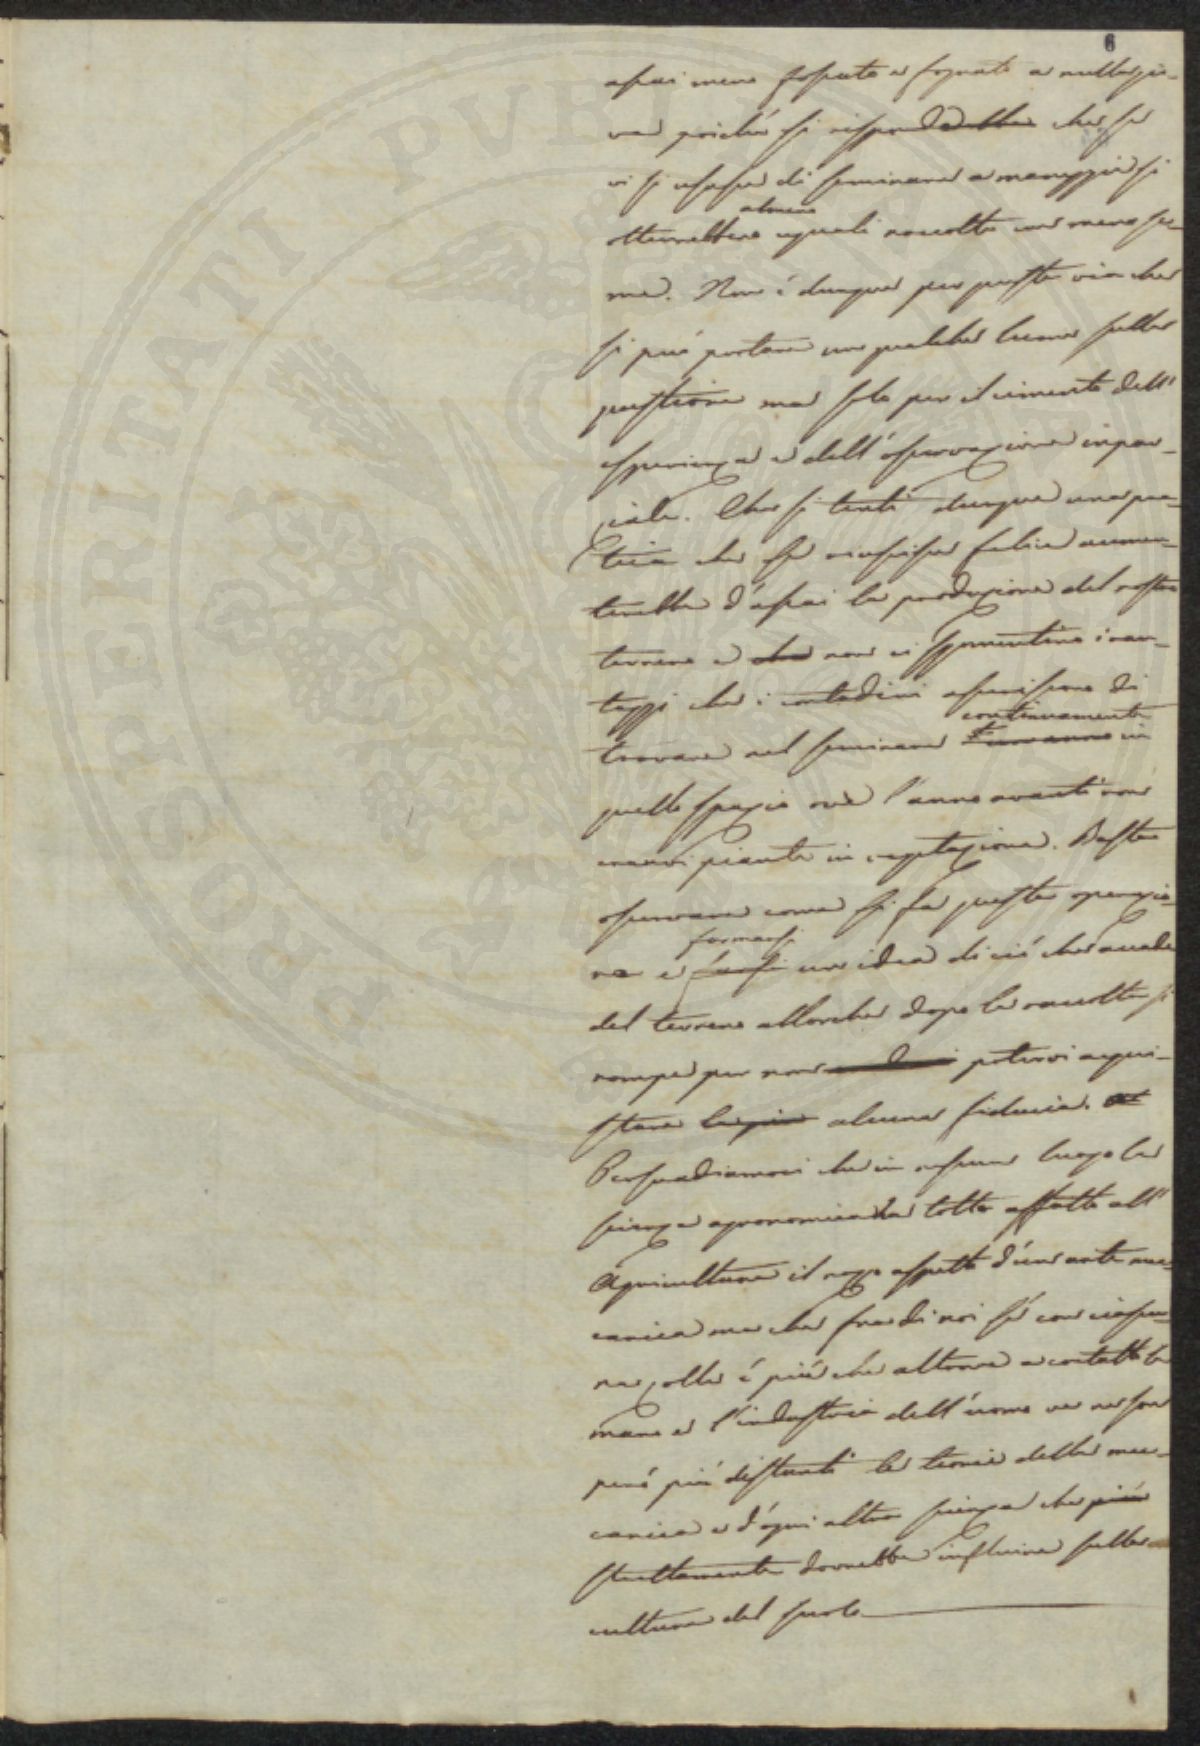 6
assai meno fossate e fognate a nulla gio-
va poiché si risponderebbe che se
vi si usasse di seminare a maneggie si
almeno
otterrebbero uguali raccolte con meno se-
me. Non è dunque per questa via che
si può portare un qualche lume sulla
questione ma solo per il cimento dell'
esperienza e dell'osservazione impar-
ziale. Che si tenti dunque una pra-
tica che se riuscisse felice aumen-
terebbe d'assai la produzione del nostro
terreno e che non ci sgomentino i van-
taggi che i contadini asseriscono di
continuamente
trovare nel seminare un anno in
quello spazio ove l'anno avanti non
eranvi piante in vegetazione. Basta
osservare come si fa questa operazio-
formarsi
ne e farsi un idea di ciò che accade
del terreno allorche dopo la raccolta si
rompe per non potervi acqui-
stare la più alcuna fiducia.
Persuadiamoci che in nessun luogo la
scienza agronomica ha tolto affatto all'
Agricoltura il rozzo aspetto d'un arte mec-
canica ma che fra di noi se con ciascu-
na zolla è più che altrove a contatto la
mano e l'industria dell'uomo ne son
però più distanti le teorie della mec-
canica e d'ogni altra scienza che più
strettamente dovrebbe influire sulla
cultura del suolo
PROSPERITATI PUBLICAE